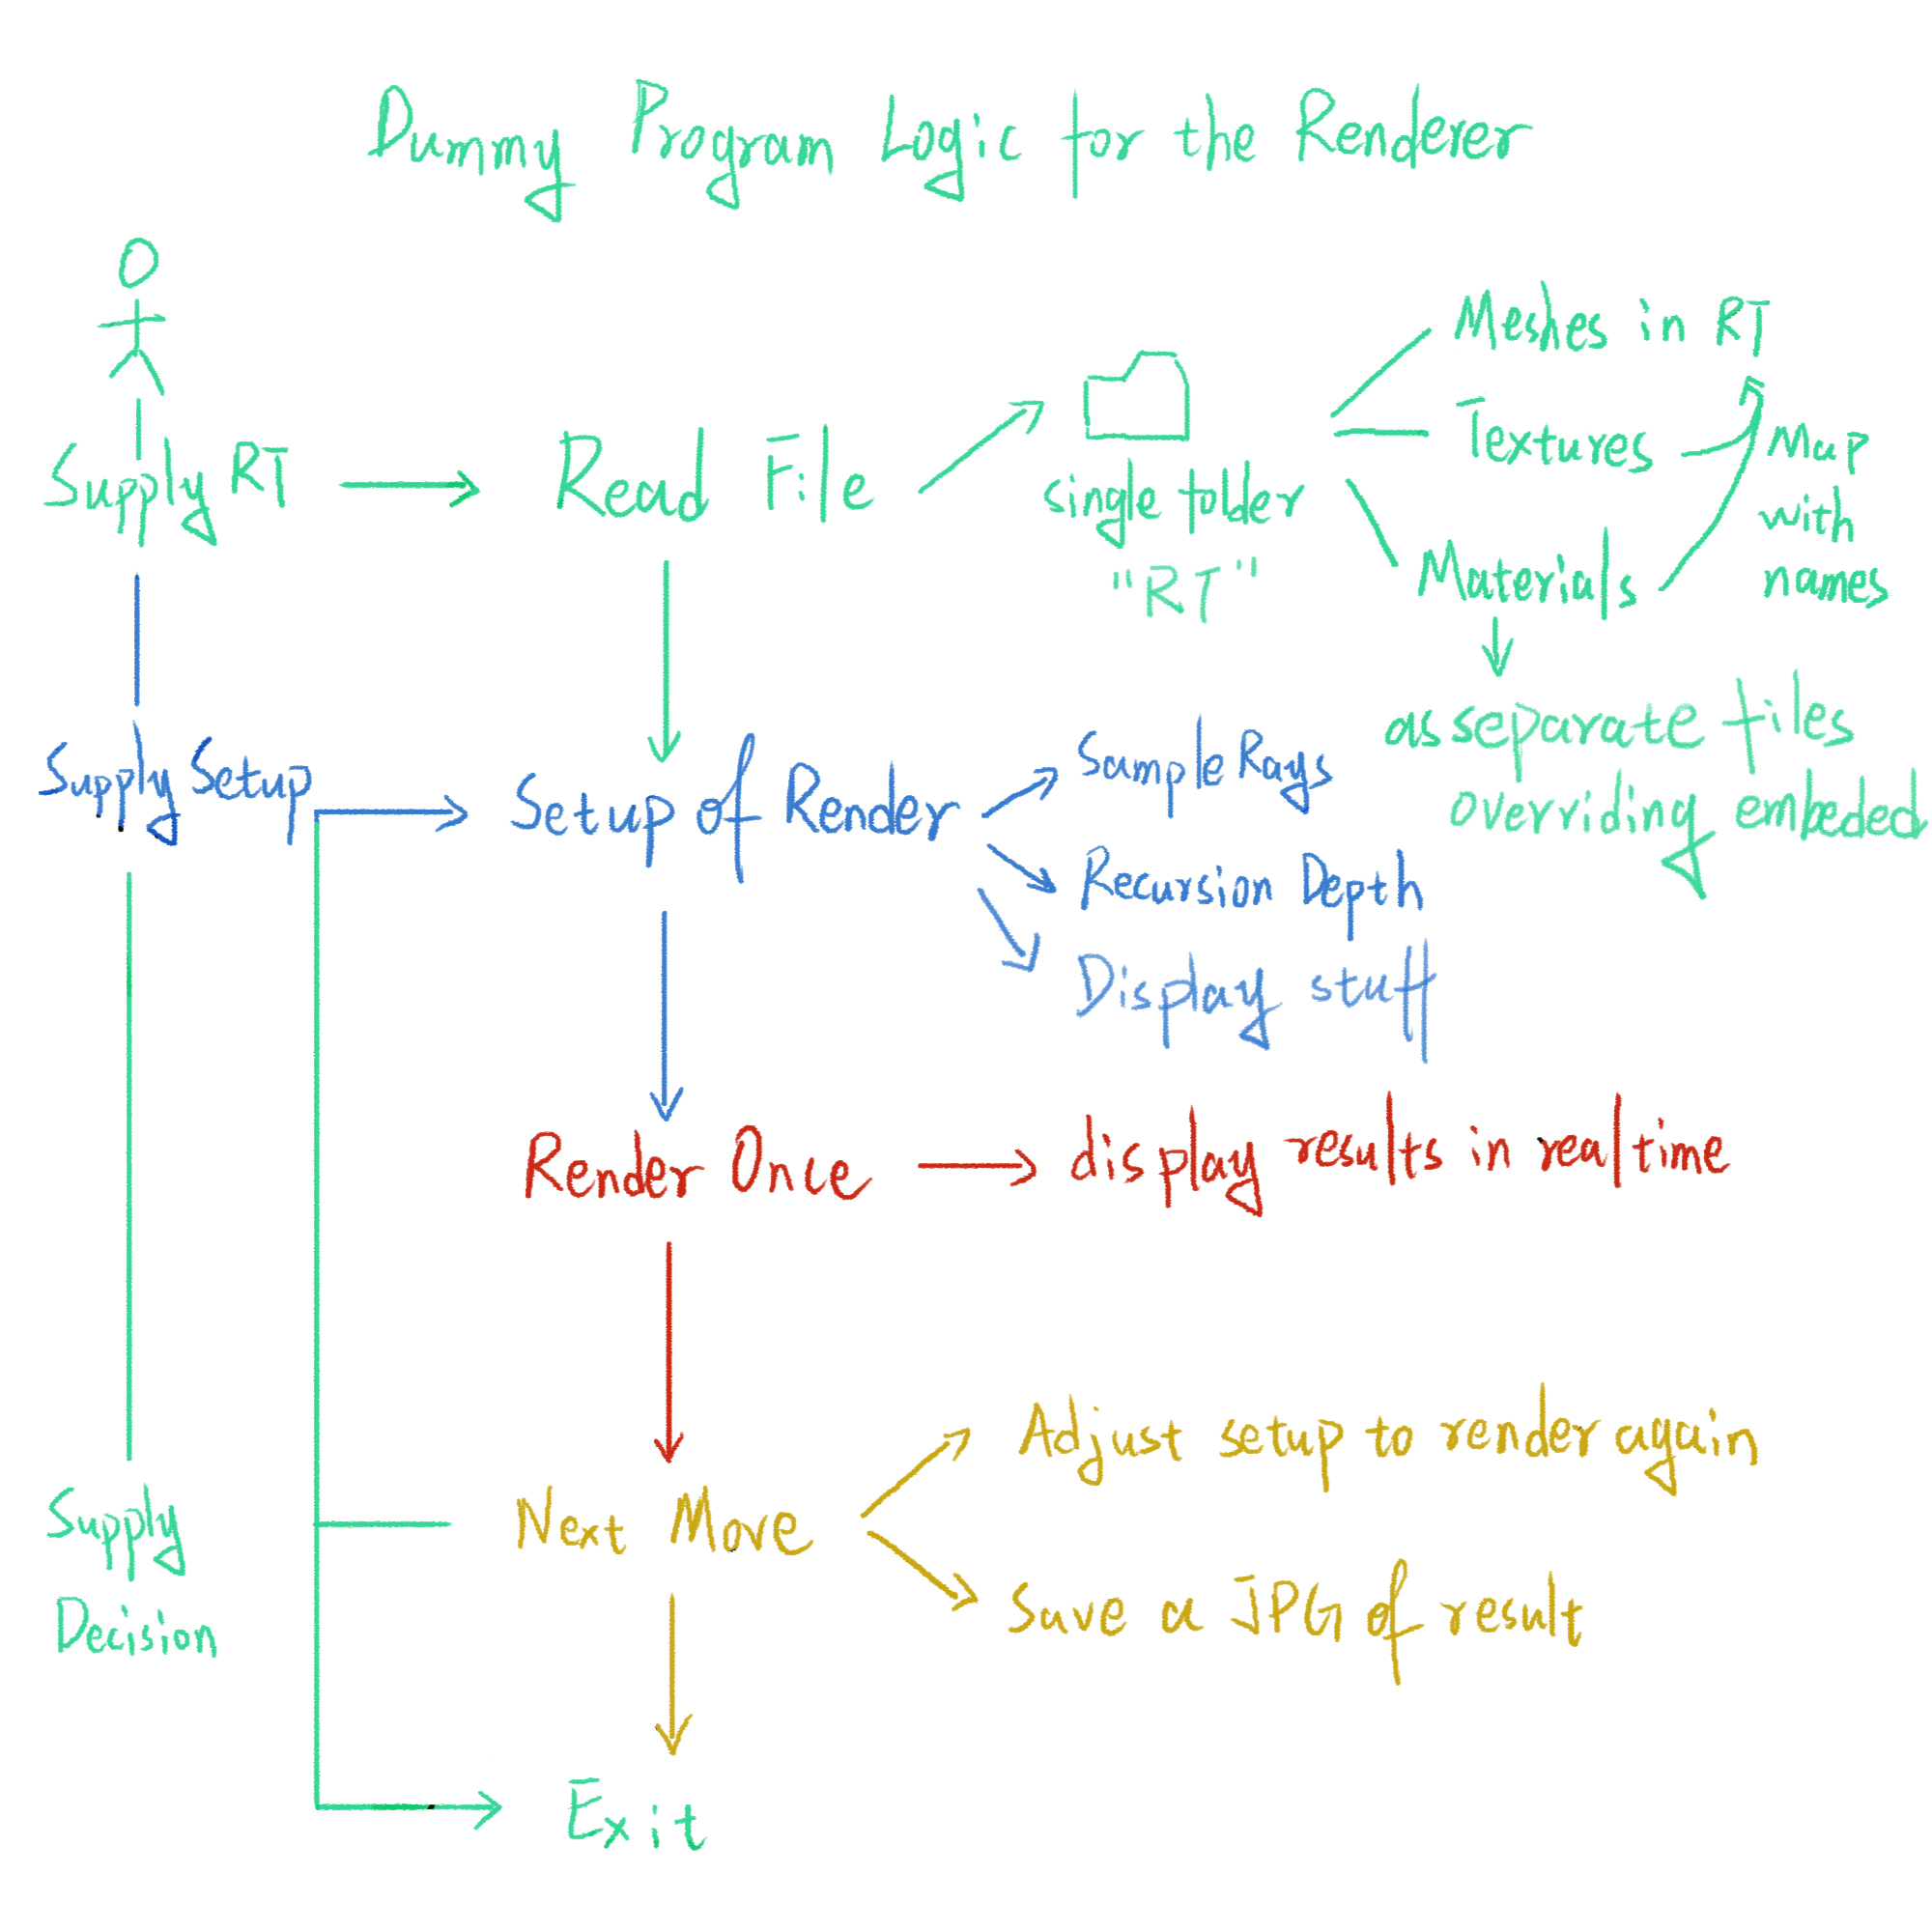 Dummy Program Logic for the Renderer
Supply RT
Read File
single folder
"RT"
Meshes in RT
Textures
Materials
Map
with
names
as separate files
overriding embeded
Supply Setup
Setup of Render
Sample Rays
Recursion Depth
Display stuff
Render Once
display results in realtime
Supply
Decision
Next Move
Adjust setup to render again
Save a JPG of result
Exit